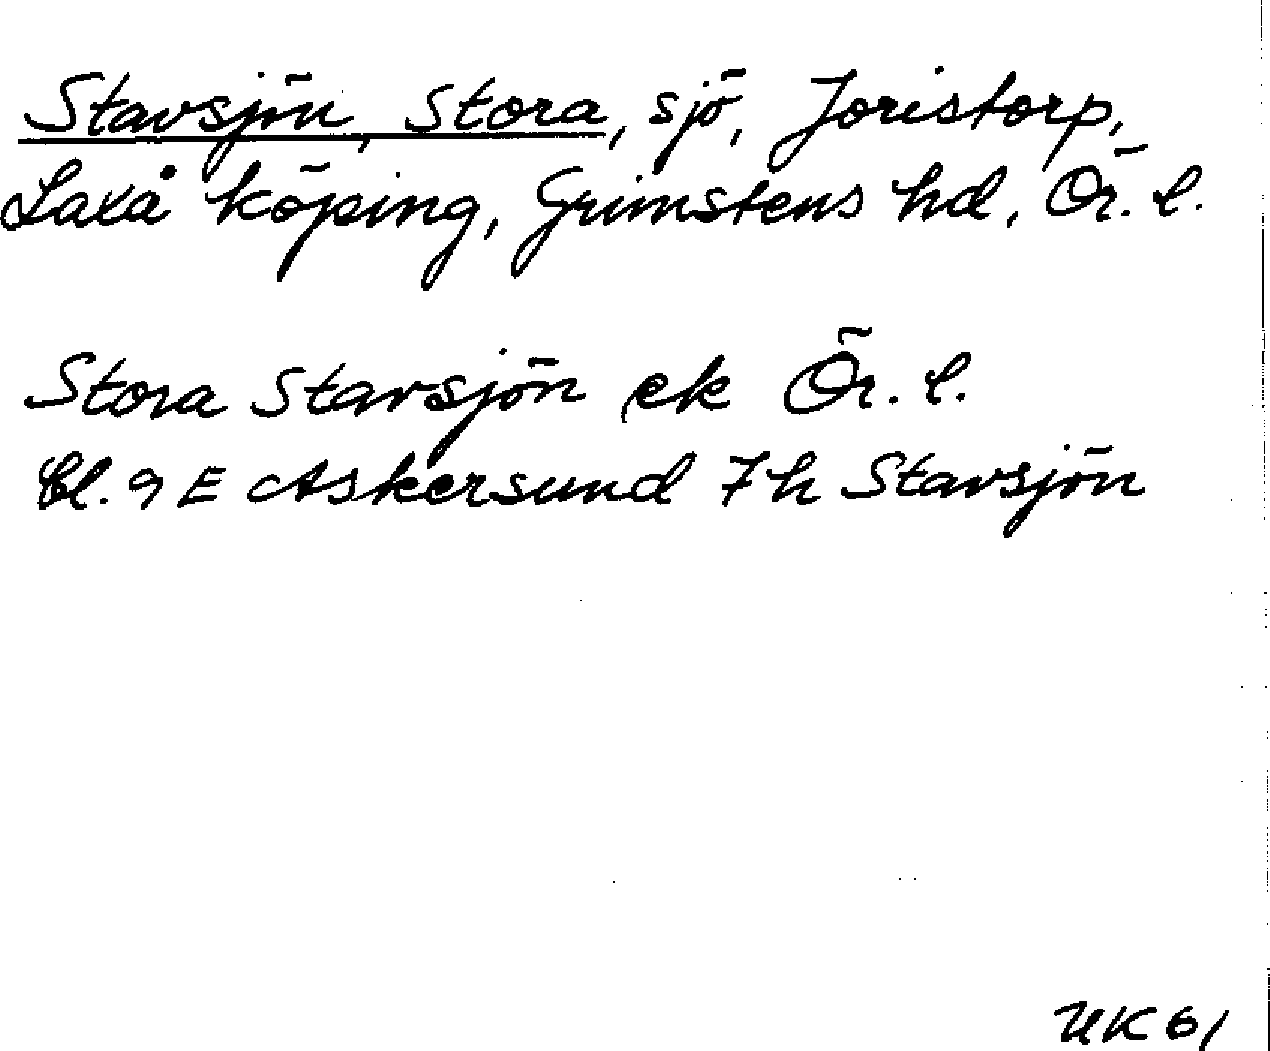 Stavsjön, Stora, sjö, Joristorp,
Laxå köping, Grimstens hd, Ör. l.
Stora Stavsjön ek Ör. l.
Bl. 9 E Askersund 7 h Stavsjön
UK 61